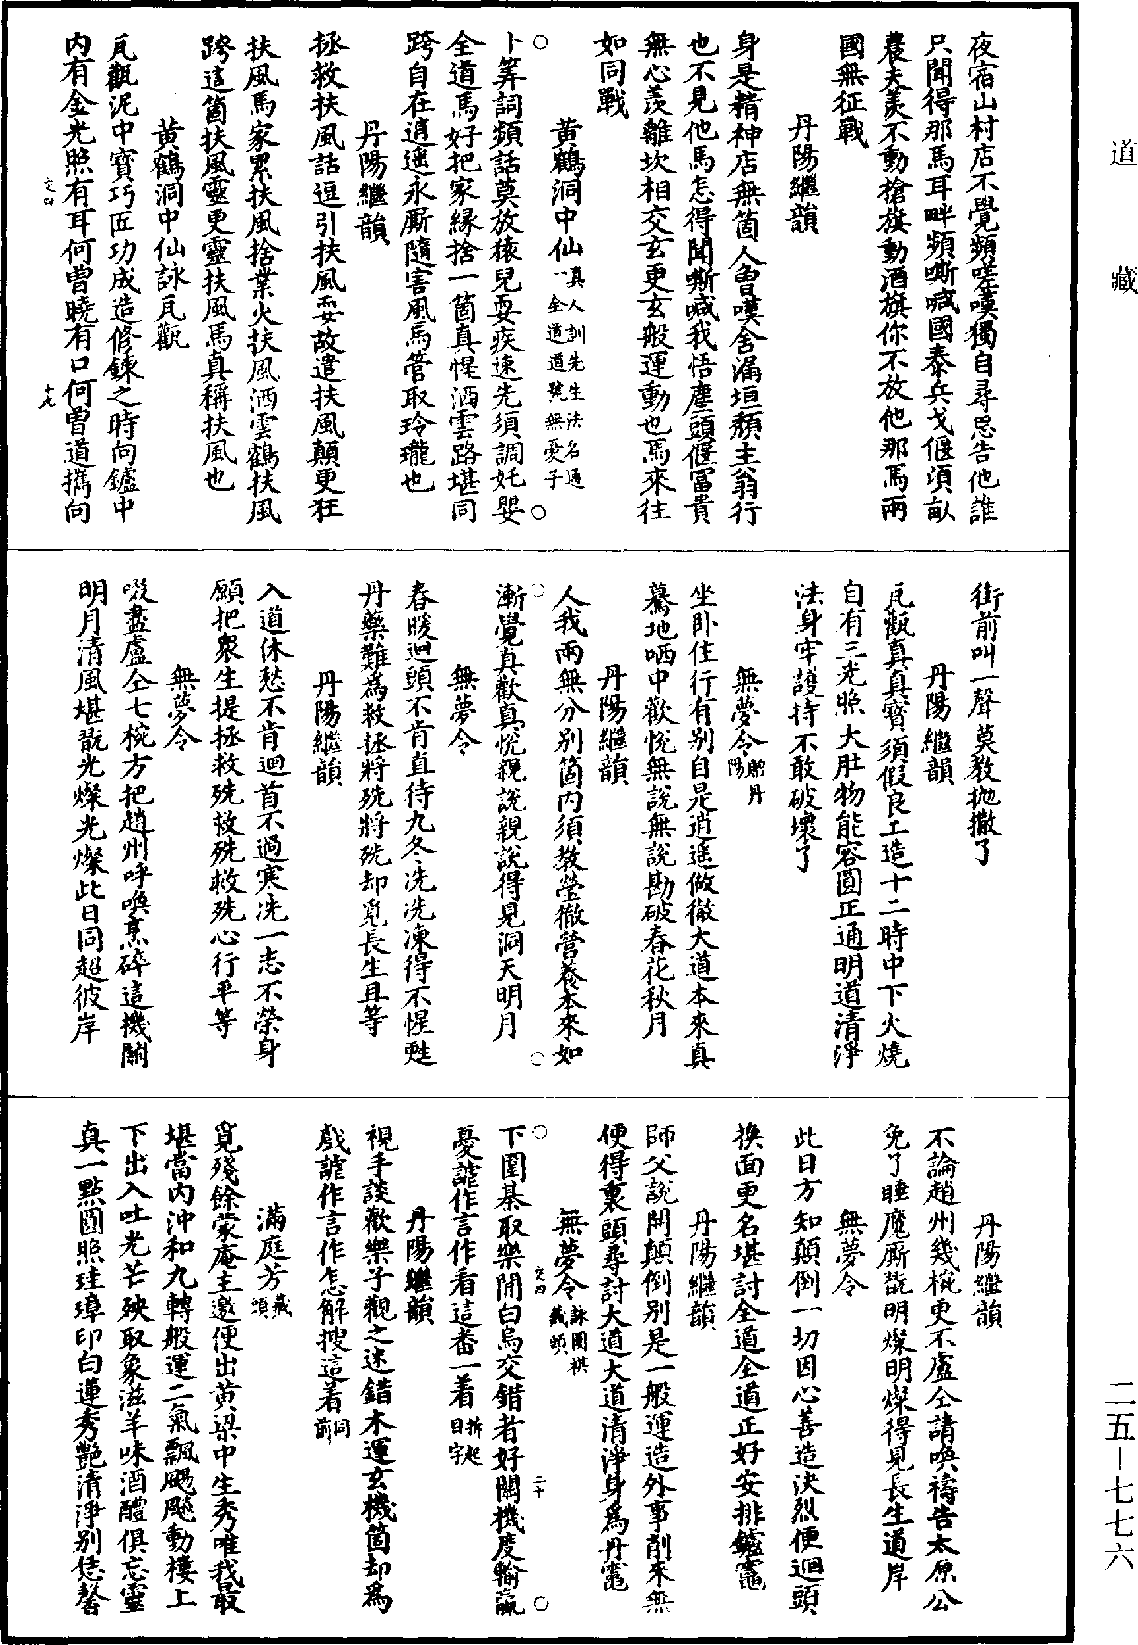 道藏
夜宿山村店不覺頻嗟嘆獨自尋思告他誰
只聞得那馬耳畔頻嘶喊國泰兵戈偃須畝
農夫羨不動槍旗動酒旗你不放他那馬兩
國無征戰
丹陽繼韻
身是精神店無箇人曾嘆舍漏垣頹主翁行
也不見他馬怎得聞嘶喊我悟塵頭偃富貴
無心羨離坎相交玄更玄般運動也馬來往
如同戰
黃鶴洞中仙真人訓先生法名通一全道道號無憂子
卜筭詞頻話莫放猿兒耍疾速先須調奼嬰
全道馬好把家緣捨一箇真惺洒雲路堪同
跨自在逍遙永厮隨害風馬管取玲瓏也
丹陽繼韻
拯救扶風話逗引扶風耍故遣扶風顛更狂
扶風馬家累扶風捨業火扶風洒雲鶴扶風
跨這箇扶風靈更靈扶風馬真稱扶風也
黃鶴洞中仙詠瓦觀
瓦觀泥中寶巧匠功成造修鍊之時向鑪中
內有金光照有耳何曾曉有口何曾道攜向
交四 十九
街前叫一聲莫教拋撒了
丹陽繼韻
瓦觀真真寶須假良工造十二時中下火燒
自有三光照大肚物能容圓正通明道清淨
法身牢護持不敢破壞了
無夢令贈丹陽
坐卧住行有別自是逍遙做徹大道本來真
驀地哂中歡悅無說無說勘破春花秋月
丹陽繼韻
人我兩無分別箇內須教瑩徹營養本來如
漸覺真歡真悅親說親說得見洞天明月
無夢令
春暖迴頭不肯直待九冬冼冼凍得不惺甦
丹藥難為救拯將殑將殑却覓長生且等
丹陽繼韻
入道休愁不肯迴首不過寒冼一志不榮身
願把衆生提拯救殑救殑救殑心行平等
無夢令
啜盡盧仝七椀方把趙州呼喚烹碎這機關
明月清風堪翫光燦光燦此日同超彼岸
丹陽繼韻
不論趙州幾椀更不盧仝請喚禱告太原公
免了睡魔厮翫明燦明燦得見長生道岸
無夢令
此日方知顛倒一切因心善造決烈便迴頭
換面更名堪討全道全道正好安排鑪竈
丹陽繼韻
師父說開顛倒別是一般運造外事削來無
便得裏頭尋討大道大道清淨身為丹竈
無夢令詠圍棋藏頭
交四 二十
下圍棊取樂開白烏交錯者好關機度輸贏
憂謔作言作看這番一着拆起日字
丹陽繼韻
視手談歡樂子觀之迷錯木運玄機箇却為
戲謔作言作怎解搜這着同前
滿庭芳藏頭
覓殘餘蒙庵主邀便出黃梁中生秀唯我最
堪當內沖和九轉般運二氣飄颺颺動樓上
下出入吐光芒殃取象滋羊味酒醴俱忘靈
真一點圓照珪璋印白蓮秀艷清淨別恁馨
二五—七七六